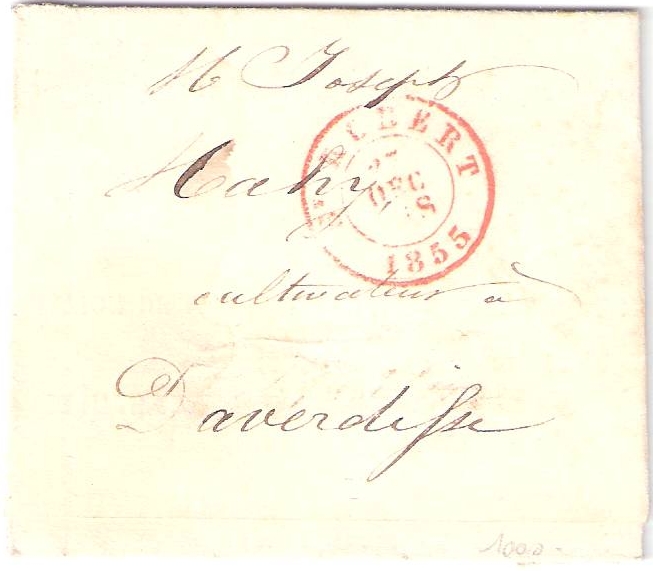 M Joseph
Mahy
cultivateur à
Daverdisse
St HUBERT
DEC
1855
1000